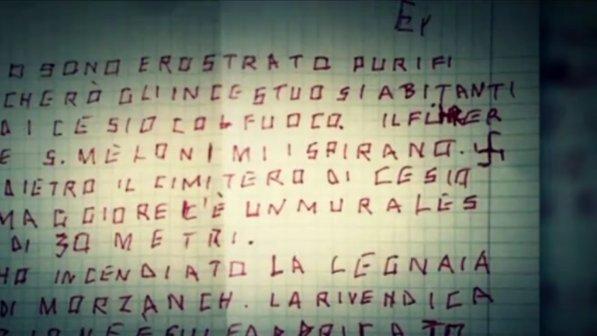 Er
O SONO EROSTRATO PURIFI
CHERÒ GLI INCESTUOSI ABITANTI
DI CESIO COL FUOCO. IL FÜHRER
E S. MELONI MI ISPIRANO. 卐
DIETRO IL CIMITERO DI CESIO
MAGGIORE C'È UN MURALES
DI 30 METRI.
HO INCENDIATO LA LEGNAIA
DI MORZANCH. LA RIVENDICA